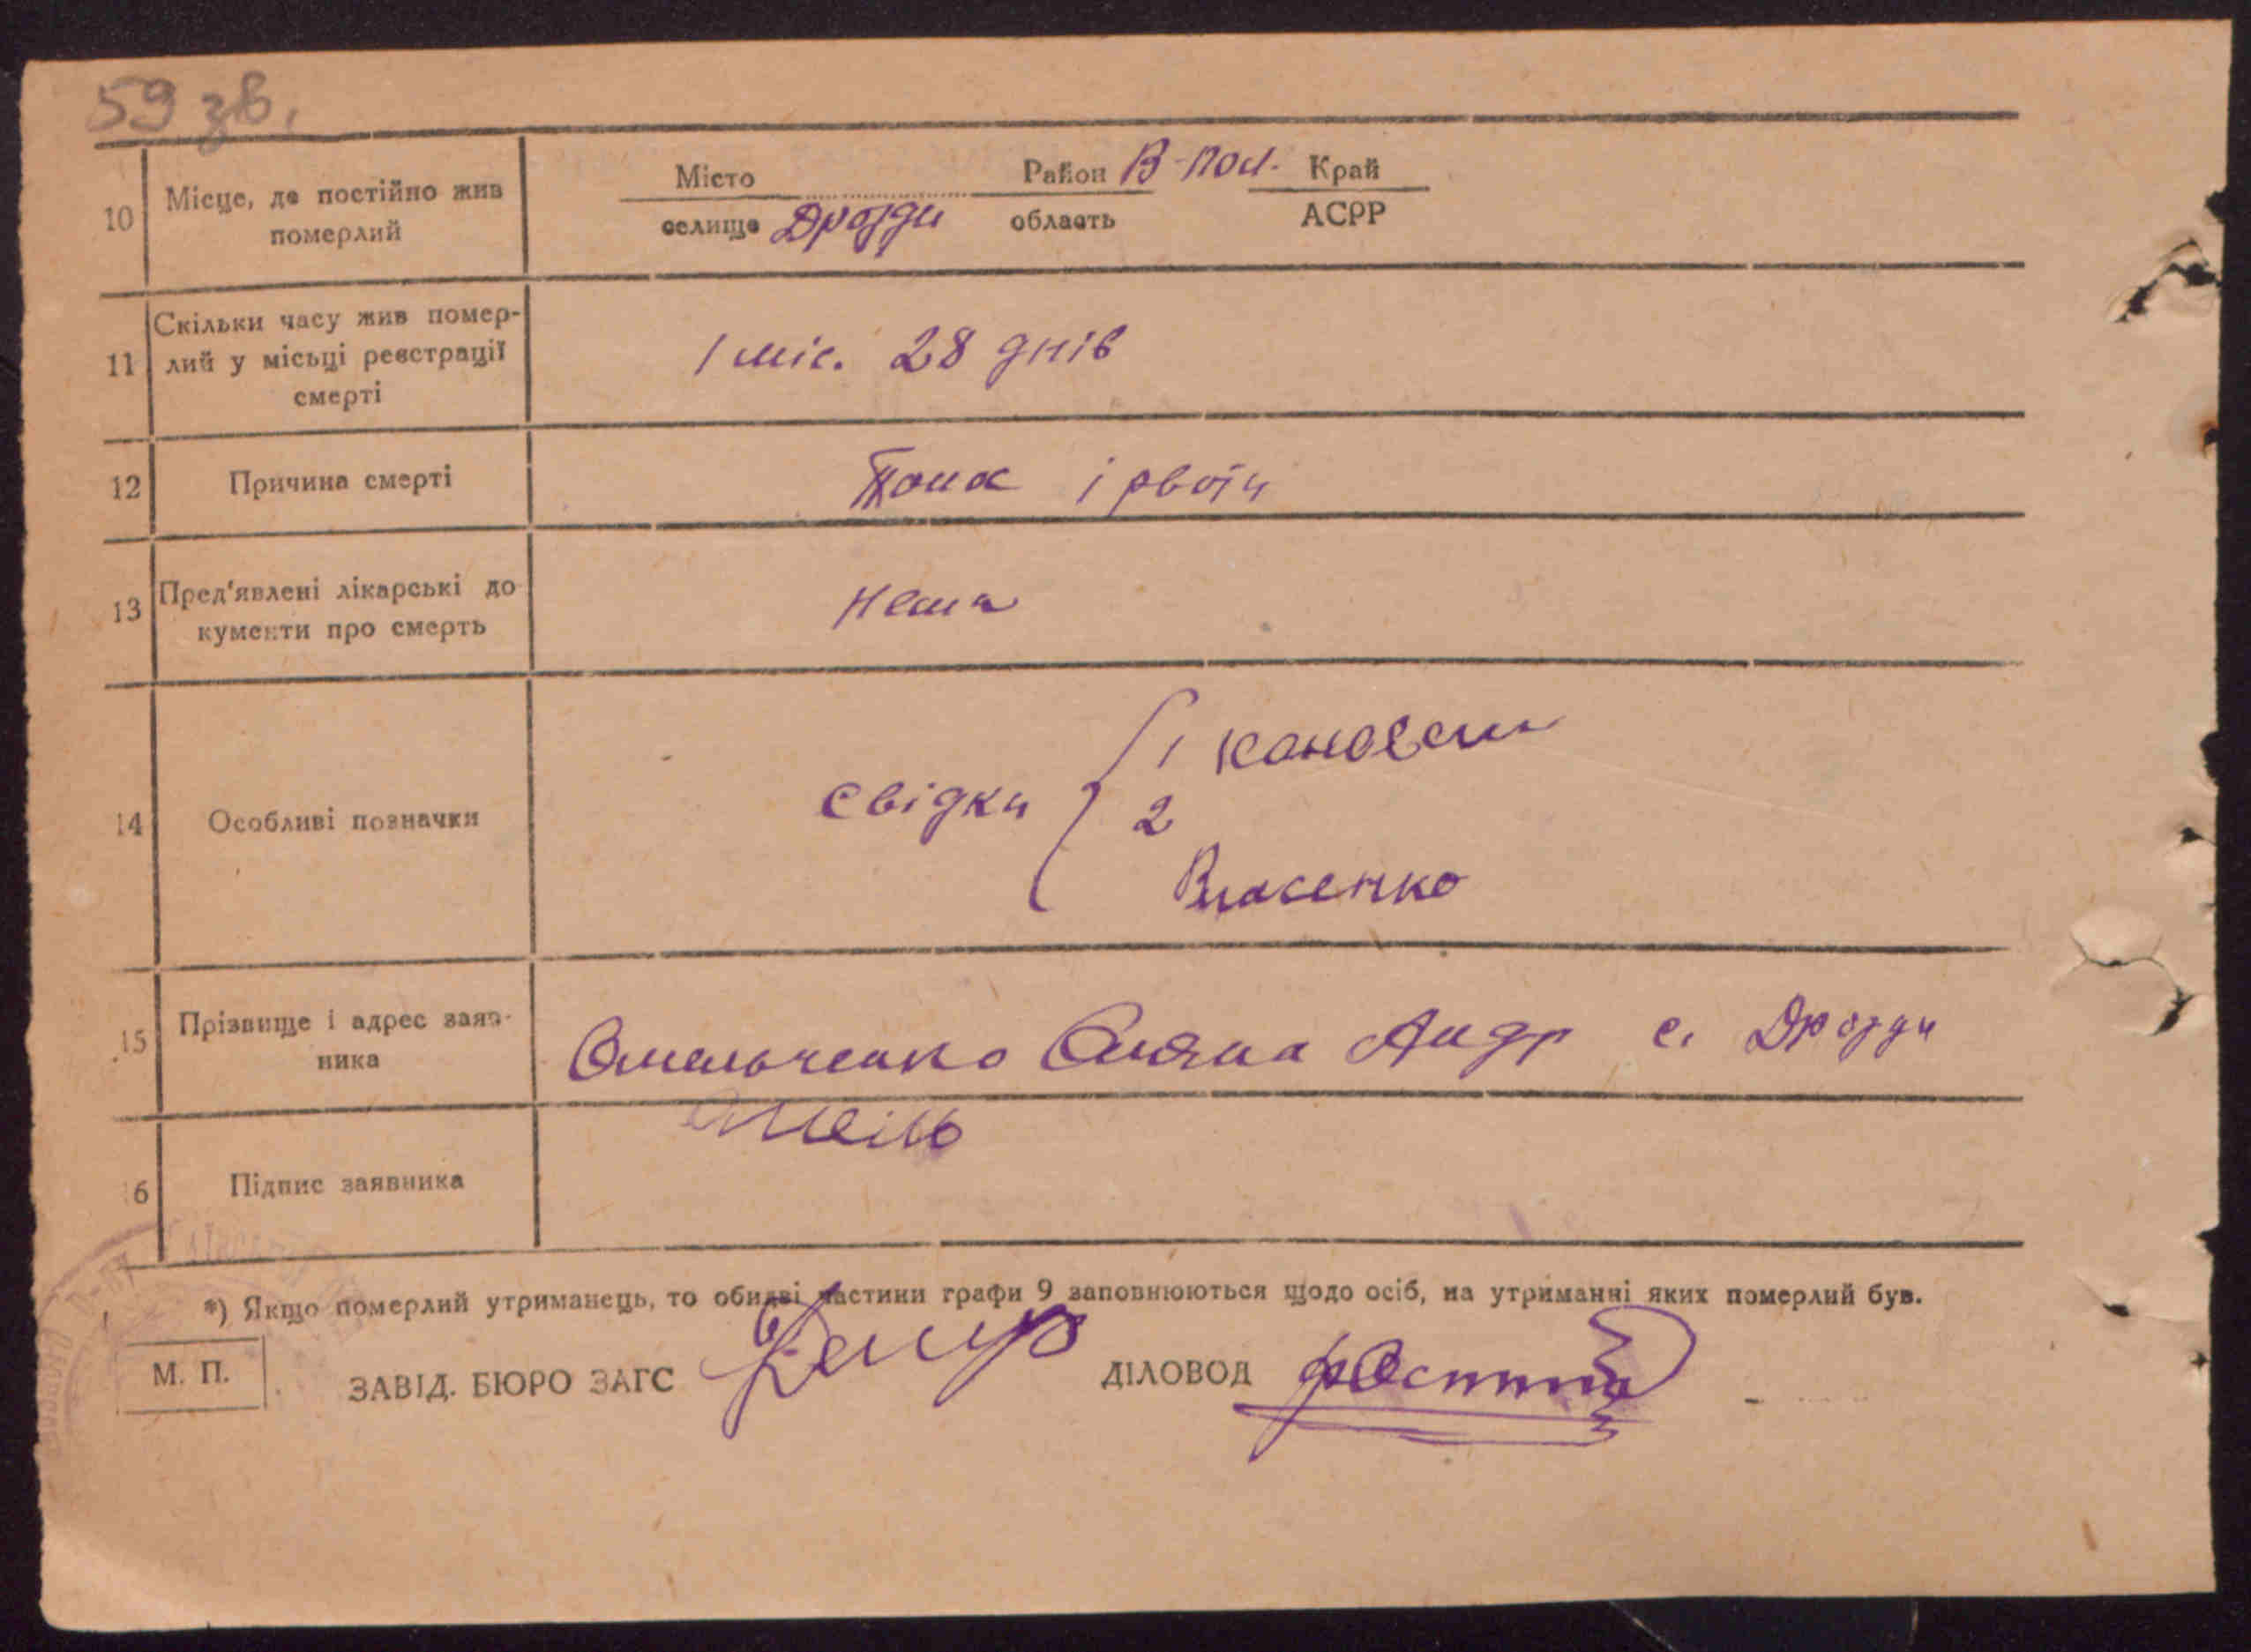 59 зв.
10 Місце, де постійно жив померлий
Місто Район В-Пол. Край
селище Дрозди область АСРР
11 Скільки часу жив помер-
лий у місьці реєстрації
смерті
1 міс. 28 днів
12 Причина смерті
і рвоти
13 Пред'явлені лікарські до
кументи про смерть
Нема
14 Особливі позначки
свідки
1
2
Власенко
15 Прізвище і адрес заяв-
ника
Омельченко Андр с. Дрозди
16 Підпис заявника
*) Якщо померлий утриманець, то обидві частини графи 9 заповнюються щодо осіб, на утриманні яких померлий був.
М. П. ЗАВІД. БЮРО ЗАГС ДІЛОВОД